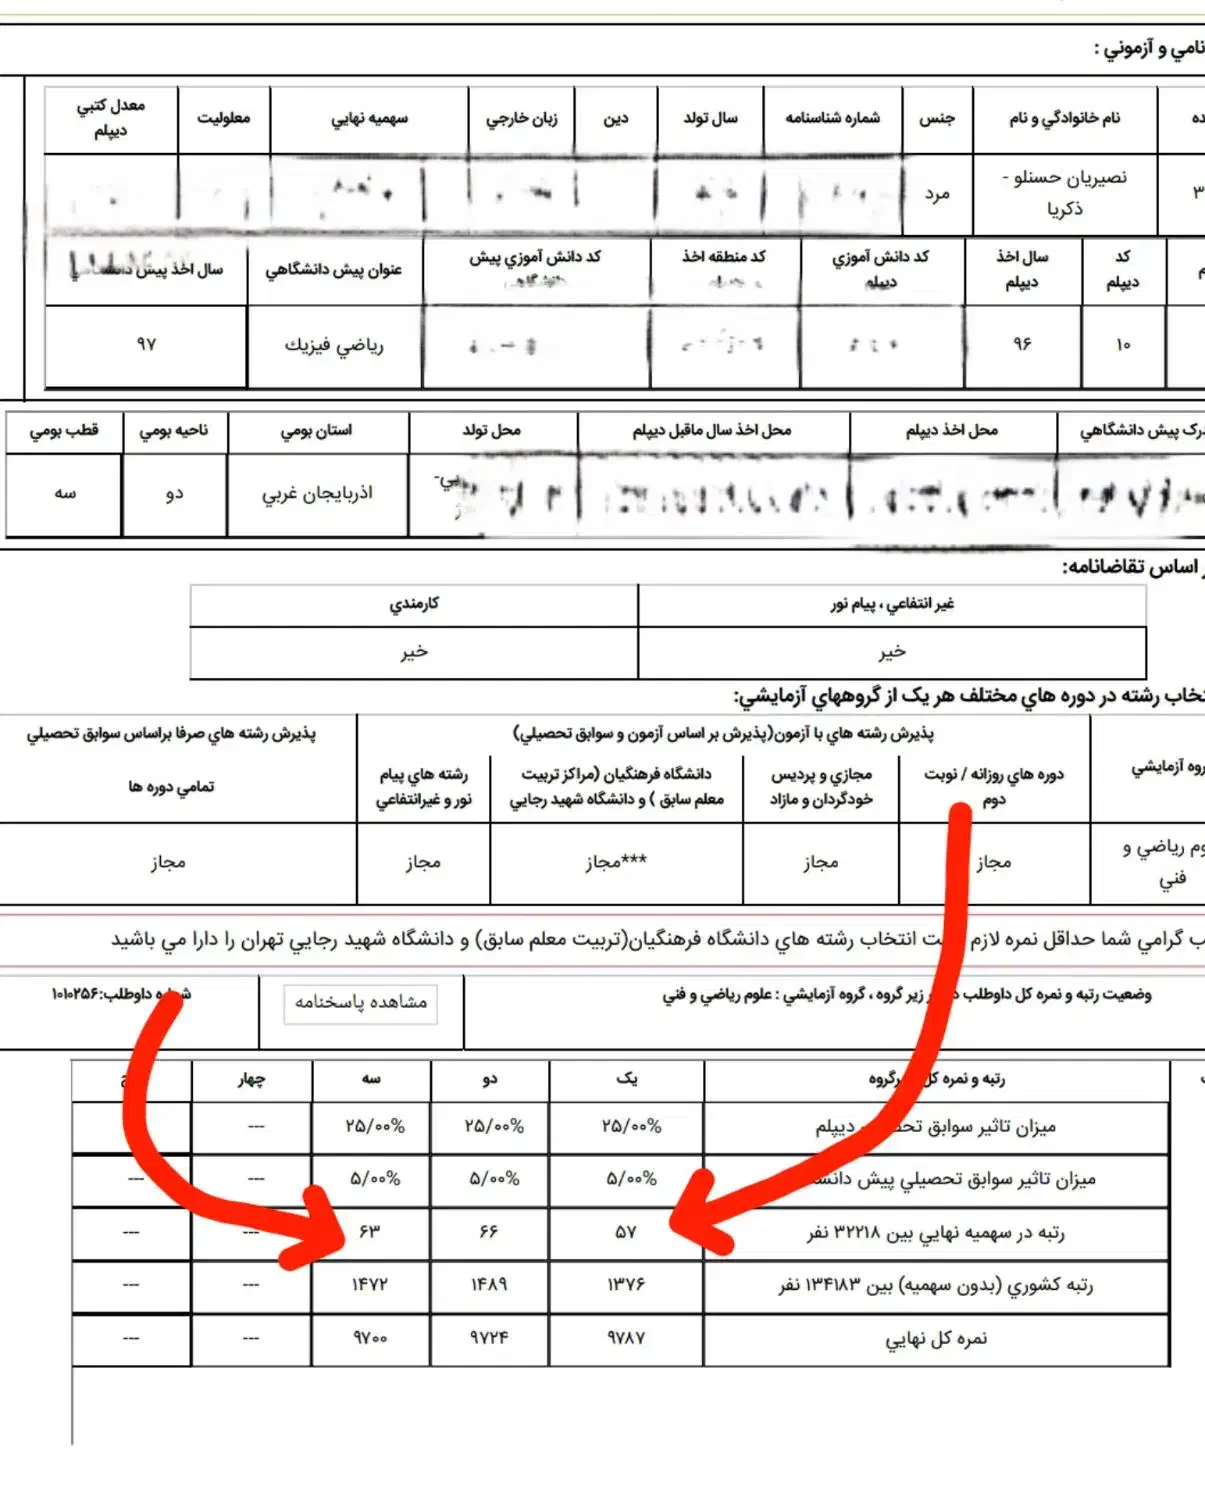 نامي و آزموني :
نام خانوادگي و نام جنس شماره شناسنامه سال تولد دين زبان خارجي سهميه نهايي معلوليت معدل كتبي ديپلم
نصيريان حسنلو - ذكريا مرد
كد ديپلم سال اخذ ديپلم كد دانش آموزي ديپلم كد منطقه اخذ كد دانش آموزي پيش عنوان پيش دانشگاهي سال اخذ پيش
۱۰ ۹۶ رياضي فيزيك ۹۷
پيش دانشگاهي محل اخذ ديپلم محل اخذ سال ماقبل ديپلم محل تولد استان بومي ناحيه بومي قطب بومي
اذربايجان غربي دو سه
اساس تقاضانامه:
غير انتفاعي ، پيام نور كارمندي
خير خير
رشته در دوره هاي مختلف هر يک از گروههاي آزمايشي:
آزمايشي پذيرش رشته هاي با آزمون(پذيرش بر اساس آزمون و سوابق تحصيلي) پذيرش رشته هاي صرفا براساس سوابق تحصيلي
دوره هاي روزانه / نوبت دوم مجازي و پرديس خودگردان و مازاد دانشگاه فرهنگيان (مراكز تربيت معلم سابق ) و دانشگاه شهيد رجايي رشته هاي پيام نور و غيرانتفاعي تمامي دوره ها
رياضي و فني مجاز مجاز ***مجاز مجاز مجاز
گرامي شما حداقل نمره لازم انتخاب رشته هاي دانشگاه فرهنگيان(تربيت معلم سابق) و دانشگاه شهيد رجايي تهران را دارا مي باشيد
وضعيت رتبه و نمره كل داوطلب زير گروه ، گروه آزمايشي : علوم رياضي و فني مشاهده پاسخنامه داوطلب:۱۰۱۰۲۵۶
رتبه و نمره يک دو سه چهار
ميزان تاثير سوابق ديپلم ۲۵/۰۰% ۲۵/۰۰% ۲۵/۰۰% ---
ميزان تاثير سوابق تحصيلي پيش ۵/۰۰% ۵/۰۰% ۵/۰۰% --- ---
رتبه در سهميه نهايي بين ۳۲۲۱۸ نفر ۵۷ ۶۶ ۶۳ --- ---
رتبه كشوري (بدون سهميه) بين ۱۳۴۱۸۳ نفر ۱۳۷۶ ۱۴۸۹ ۱۴۷۲ --- ---
نمره كل نهايي ۹۷۸۷ ۹۷۲۴ ۹۷۰۰ --- ---